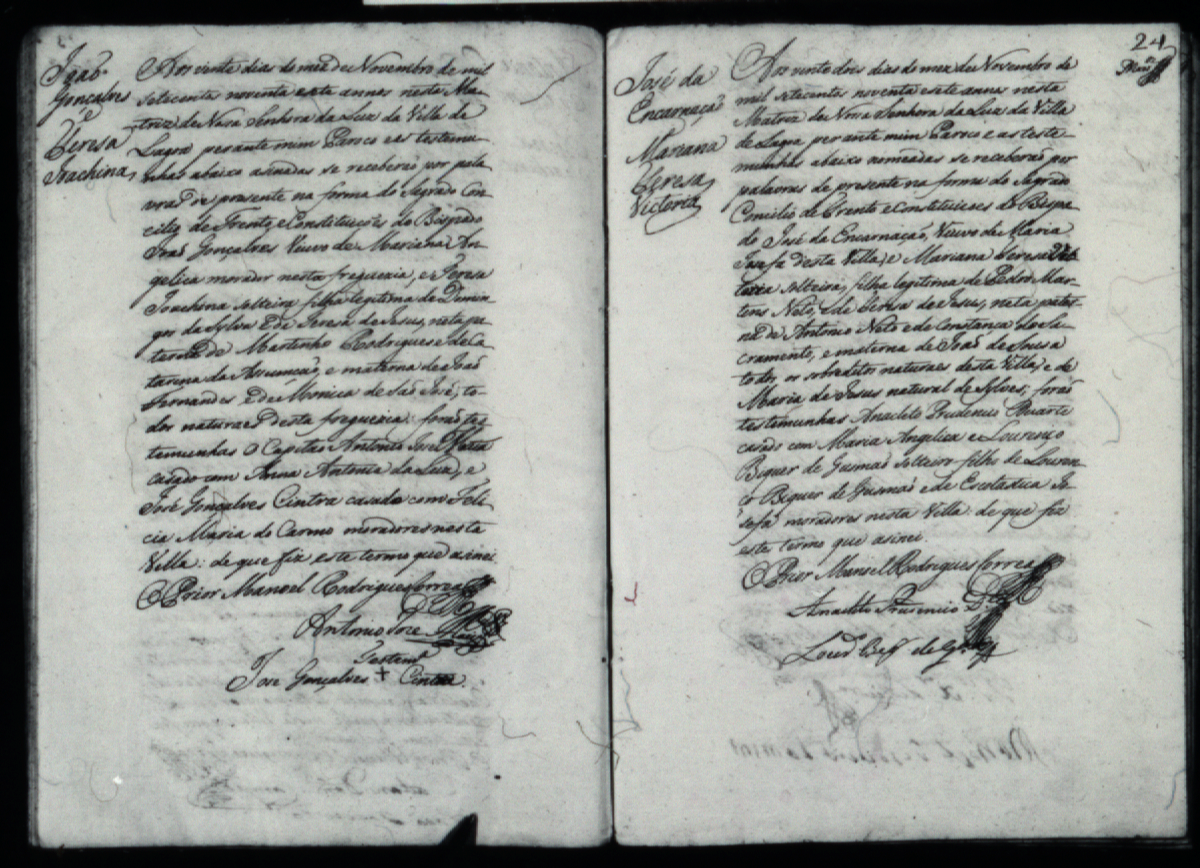 Joaõ
Gonçalves
e
Teresa
Joachina
Aos vente dias do mez de Novembro de mil
setecentos noventa e sete annos neste Ma-
triz de Nosa Senhora da Luz da Villa de
Lagoa perante mim Paroco e as testemu-
nhas abaixo asinadas se receberaõ por pala
vras de presente na forma do Sagrado Con
cilio de Trento, e Constituicoẽs do Bispado
Joaõ Gonçalves Viuvo de Mariana An-
gelica morador nesta freguezia, e Teresa
Joachina solteira filha legitima de Domin-
gos da Sylva e de Teresa de Jesus, neta pa-
terna de Martinho Rodrigues e de Ca-
tarina da Assumcaõ, e materna de Joaõ
Fernandes e de Monica de Saõ José, to-
dos naturaes desta freguezia: foraõ tes-
temunhas O Capitaõ Antonio José
casado com Anna Antonia da Luz, e
José Gonçalves Cintra casado com Feli-
cia Maria do Carmo moradores nesta
Villa: de que fiz este termo que asinei.
O Prior Manoel Rodrigues Correa
Antonio José
Testemª
José Gonçalves + Cintra
24
José da
Encarnaçaõ
e
Mariana
Teresa
Victoria
Aos vente dois dias do mez de Novembro de
mil setecentos noventa e sete annos nesta
Matriz de Nosa Senhora da Luz da Villa
de Lagoa perante mim Paroco e as teste-
munhas abaixo nomeadas se receberaõ por
palavras de presente na forma do Sagrado
Concilio de Trento e Constituicoes do Bispa-
do José da Encarnaçaõ, Viuvo de Maria
Josefa desta Villa, e Mariana Teresa Vic
toria solteira, filha legitima de Pedro Mar-
tens Neto, e de Teresa de Jesus, neta pater
na de Antonio Neto e de Constança do Sa-
cramento, e materna de Joaõ de Sousa
todos os sobreditos naturaes desta Villa, e de
Maria de Jesus natural de Sylves, foraõ
testemunhas Anacleto Prudencio Duarte
casado com Maria Angelica e Lourenço
Biquer de Gusmaõ solteiro filho de Louren-
ço Biquer de Gusmaõ e de Escolastica Jo-
sefa moradores nesta Villa: de que fiz
este termo que asinei.
O Prior Manoel Rodrigues Correa
Anacleto Prudencio